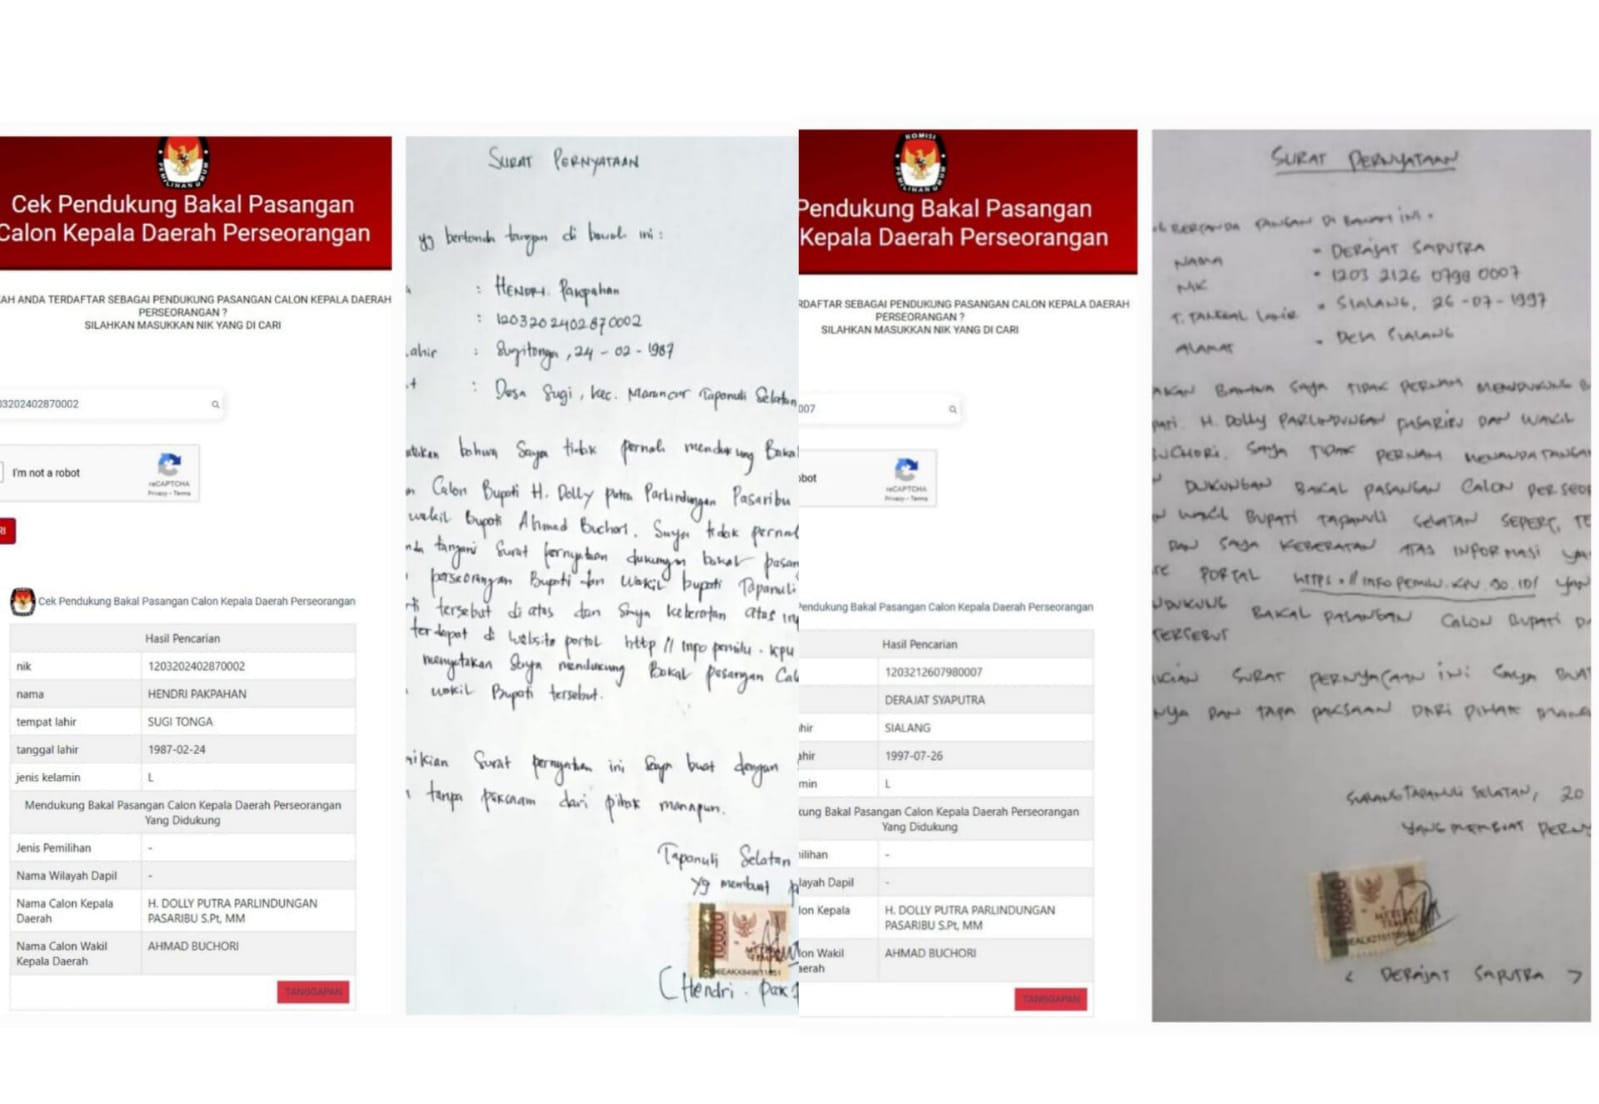 Cek Pendukung Bakal Pasangan
Calon Kepala Daerah Perseorangan
AH ANDA TERDAFTAR SEBAGAI PENDUKUNG PASANGAN CALON KEPALA DAERAH
PERSEORANGAN ?
SILAHKAN MASUKKAN NIK YANG DI CARI
03202402870002
I'm not a robot
reCAPTCHA
Privacy - Terms
RI
Cek Pendukung Bakal Pasangan Calon Kepala Daerah Perseorangan
Hasil Pencarian
nik 1203202402870002
nama HENDRI PAKPAHAN
tempat lahir SUGI TONGA
tanggal lahir 1987-02-24
jenis kelamin L
Mendukung Bakal Pasangan Calon Kepala Daerah Perseorangan
Yang Didukung
Jenis Pemilihan -
Nama Wilayah Dapil -
Nama Calon Kepala Daerah H. DOLLY PUTRA PARLINDUNGAN PASARIBU S.Pt, MM
Nama Calon Wakil Kepala Daerah AHMAD BUCHORI
TANGGAPAN
SURAT PERNYATAAN
yg bertanda tangan di bawah ini :
: HENDRI. Pakpahan
: 1203202402870002
ahir : Sugitonga, 24 - 02 - 1987
t : Desa Sugi, kec. Marancar Tapanuli Selatan
atakan bahwa Saya tidak pernah mendukung Bakal
n Calon Bupati H. DOLLY putra Parlindungan Pasaribu
wakil Bupati Ahmad Buchori. Saya tidak pernah
nda tangani Surat pernyataan dukungan bakal pasan
perseorangan Bupati dan Wakil bupati Tapanuli
ti tersebut di atas dan Saya keberatan atas in
terdapat di website portal http // info pemilu . kpu
menyatakan Saya mendukung Bakal pasangan Cal
wakil Bupati tersebut.
mikian Surat pernyataan ini Saya buat dengan
tanpa paksaan dari pihak manapun.
Tapanuli Selatan
yg membuat p
10000
(Hendri . pak
KOMISI
PEMILIHAN UMUM
Pendukung Bakal Pasangan
Kepala Daerah Perseorangan
RDAFTAR SEBAGAI PENDUKUNG PASANGAN CALON KEPALA DAERAH
PERSEORANGAN ?
SILAHKAN MASUKKAN NIK YANG DI CARI
007
obot
reCAPTCHA
Privacy - Terms
Pendukung Bakal Pasangan Calon Kepala Daerah Perseorangan
Hasil Pencarian
1203212607980007
DERAJAT SYAPUTRA
hir SIALANG
ahir 1997-07-26
min L
kung Bakal Pasangan Calon Kepala Daerah Perseorangan
Yang Didukung
ilihan -
layah Dapil -
lon Kepala H. DOLLY PUTRA PARLINDUNGAN PASARIBU S.Pt, MM
lon Wakil aerah AHMAD BUCHORI
TANGGAPAN
SURAT PERNYATAAN
BERTANDA TANGAN DI BAWAH INI .
NAMA - DERAJAT SAPUTRA
NIK - 1203 2126 0798 0007
T. TANGGAL LAHIR - SIALANG, 26 - 07 - 1997
ALAMAT - DESA SIALANG
AKAN BAHWA SAYA TIDAK PERNAH MENDUKUNG B
PATI. H. DOLLY PARLINDUNGAN PASARIBU DAN WAKIL
BUCHORI. SAYA TIDAK PERNAH MENANDATANGA
DUKUNGAN BAKAL PASANGAN CALON PERSEO
N WAKIL BUPATI TAPANULI SELATAN SEPERTI TE
DAN SAYA KEBERATAN ATAS INFORMASI YA
TE PORTAL HTTPS://INFOPEMILU.KPU.GO.ID/ YAN
NDUKUNG BAKAL PASANGAN CALON BUPATI DA
TERSEBUT
IKIAN SURAT PERNYATAAN INI SAYA BUAT
NYA DAN TAPA PAKSAAN DARI PIHAK MANA
TAPANULI SELATAN, 20
YANG MEMBUAT PERNY
10000
< DERAJAT SAPUTRA >